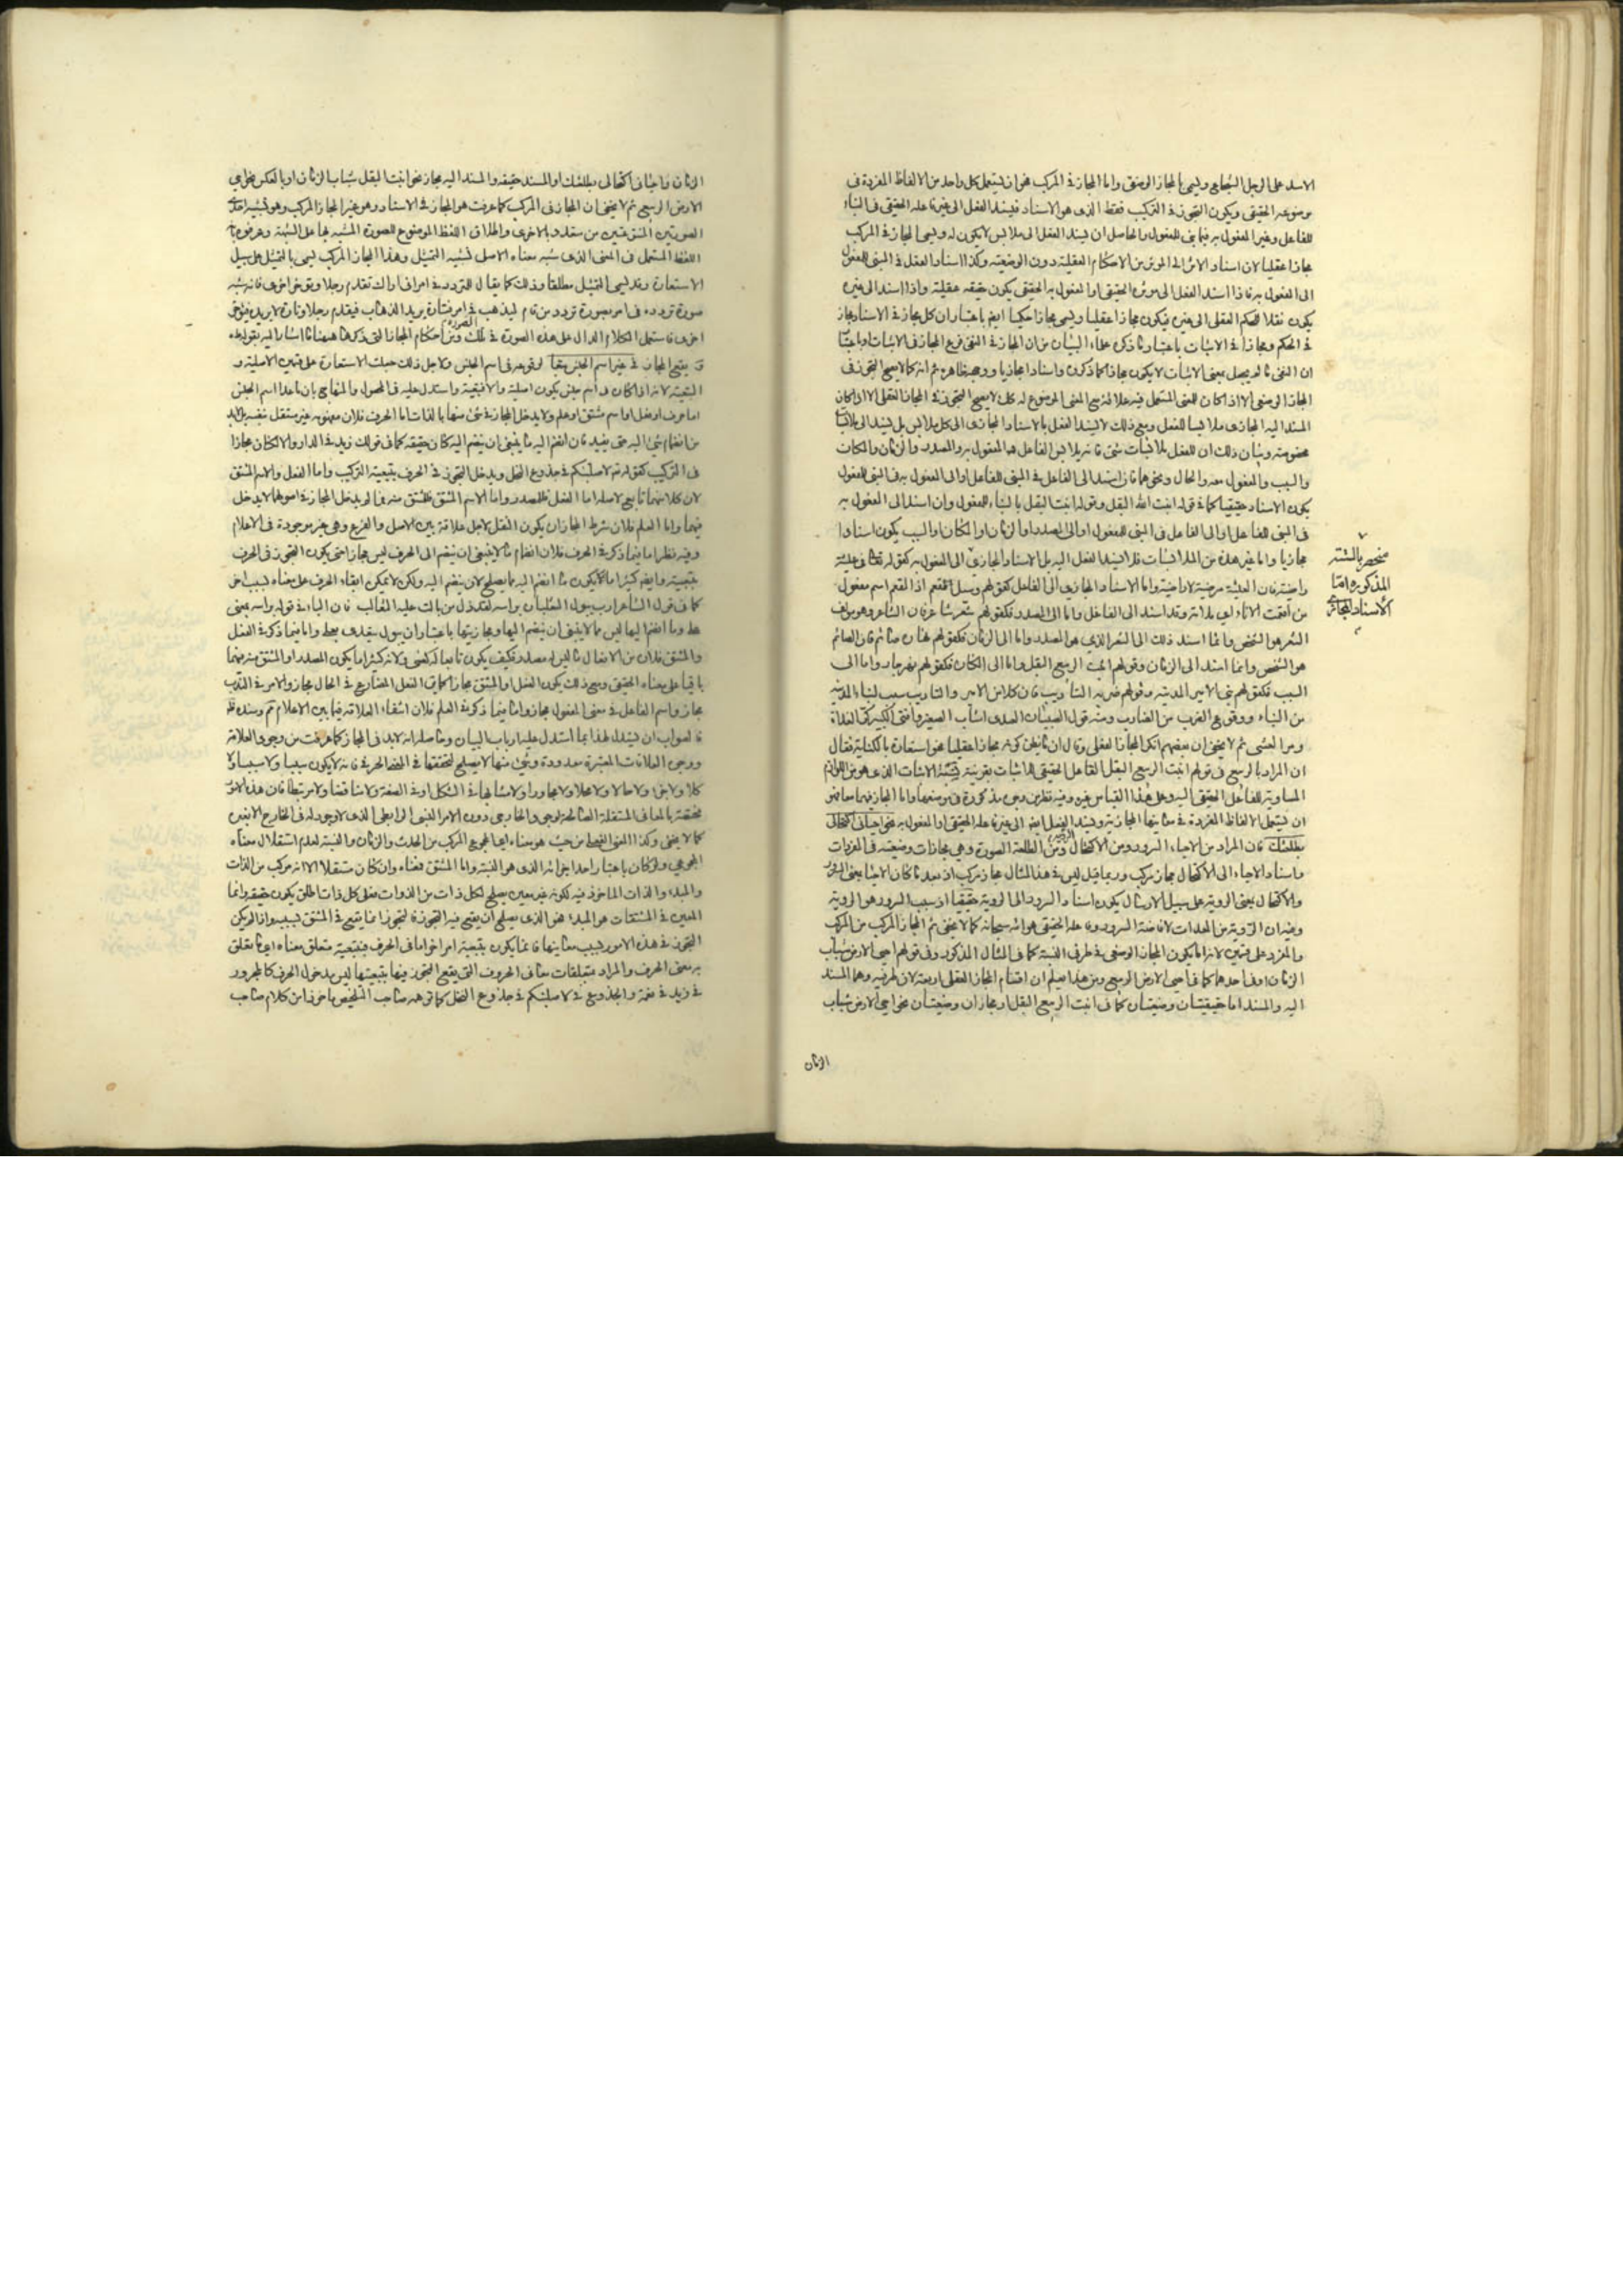 الاسد على الرجل الشجاع ويسمى بالمجاز الوضعى واما المجاز فى المركب فهو ان يستعمل كل واحد من الالفاظ المفردة فى
موضوعه الحقيقى ويكون التجوز فى التركيب فقط الذى هو الاسناد فيسند الفعل الى غير فاعله الحقيقى فى البناء
للفاعل وغير المفعول به فيما بنى للمفعول والحاصل ان يسند الفعل الى ملابس لا يكون له ويسمى المجاز فى المركب
مجازا عقليا لان اسناد الاثر الى المؤثر من الاحكام العقلية دون الوضعية وكذا اسناد الفعل فى المبنى للمفعول
الى المفعول به فاذا اسند الفعل الى مؤثره الحقيقى او المفعول به الحقيقى يكون حقيقة عقلية واذا اسند الى غيره
يكون نقلا للحكم العقلى الى غيره فيكون مجازا عقليا ويسمى مجازا حكميا ايضا باعتبار ان كل مجاز فى الاسناد مجاز
فى الحكم ومجازا فى الاثبات باعتبار ما ذكره علماء البيان من ان المجاز فى النفى فرع المجاز فى الاثبات او باعتبار
ان النفى ما لم يجعل بمعنى الاثبات لا يكون مجازا كما ذكروه واسنادا مجازيا ووجهه ظاهر ثم انه كما لا يصح التجوز فى
المجاز الوضعى الا اذا كان للمعنى المستعمل فيه علاقة مع المعنى الموضوع له كذلك لا يصح التجوز فى المجاز العقلى الا اذا كان
المسند اليه المجازى ملابسا للفعل ومع ذلك لا يسند الفعل بالاسناد المجازى الى كل ملابس بل يسند الى ملابسات
مخصوصة وبيان ذلك ان للفعل ملابسات شتى فانه يلابس الفاعل والمفعول به والمصدر والزمان والمكان
والسبب والمفعول معه والحال ونحوهما فان اسند الى الفاعل فى المبنى للفاعل او الى المفعول به فى المبنى للمفعول
يكون الاسناد حقيقيا كما فى قوله انبت الله البقل وقوله انبت البقل بالبناء للمفعول وان اسند الى المفعول به
فى المبنى للفاعل او الى الفاعل فى المبنى للمفعول او الى المصدر او الزمان او المكان او السبب يكون اسنادا
مجازيا واما غير هذه من الملابسات فلا يسند الفعل اليه بل الاسناد المجازى الى المفعول به كقوله تعالى فى عيشة
راضية فان العيشة مرضية لا راضية واما الاسناد المجازى الى الفاعل كقولهم وسيل مفعم اذ المفعم اسم مفعول
من افعمت الاناء اى ملأته وقد اسند الى الفاعل واما الى المصدر فكقولهم شعر شاعر فان الشاعر هو مؤلف
الشعر هو الشخص وانما اسند ذلك الى الشعر الذى هو المصدر واما الى الزمان فكقولهم نهاره صائم فان الصائم
هو الشخص وانما اسند الى الزمان وقولهم انبت الربيع البقل واما الى المكان فكقولهم نهر جار واما الى
السبب فكقولهم بنى الامير المدينة وقولهم ضربه التأديب فان كلا من الامير والتأديب سبب لبناء المدينة
من البناء ووقوع الضرب من الضارب ومنه قول الصلتان العبدى اشاب الصغير وافنى الكبير كر الغداة
ومر العشى ثم لا يخفى ان بعضهم انكر المجاز العقلى وقال ان ما يظن كونه مجازا عقليا نحو استعارة بالكناية فقال
ان المراد بالربيع فى قولهم انبت الربيع البقل الفاعل الحقيقى للانبات بقرينة نسبة الانبات الذى هو من اللوازم
المساوية للفاعل الحقيقى اليه وعلى هذا القياس غيره وفيه نظر من وجوه مذكورة فى موضعها واما المجاز فيهما معا فهو
ان يستعمل الالفاظ المفردة فى معانيها المجازية ويسند الفعل ايضا الى غير فاعله الحقيقى او المفعول به نحو احيانى اكتحالى
بطلعتك فان المراد من الاحياء السرور ومن الاكتحال الرؤية ومن الطلعة الصورة وهى مجازات وضعية فى المفردات
واسناد الاحياء الى الاكتحال مجاز مركب وربما قيل ليس فى هذا المثال مجاز مركب اذ بعد ما كان الاحياء بمعنى السرور
والاكتحال بمعنى الرؤية على سبيل الارسال يكون اسناد السرور الى الرؤية حقيقيا اذ سبب السرور هو الرؤية
وفيه ان الرؤية من المعدات لافاضة السرور وفاعله الحقيقى هو الله سبحانه كما لا يخفى ثم المجاز المركب من المركب
والمفرد على قسمين لانه اما يكون المجاز الوضعى فى طرفى النسبة كما فى المثال المذكور وفى قولهم احيى الارض شباب
الزمان او فى احدهما كما فى احيى الارض الربيع ومن هذا يعلم ان اقسام المجاز العقلى اربعة لان طرفيه وهما المسند
اليه والمسند اما حقيقتان وضعيتان كما فى انبت الربيع البقل او مجازان وضعيتان نحو احيى الارض شباب
منحصر بالستة
المذكورة اما
الاسناد المجازى
الزمان
الزمان واحيانى اكتحالى بطلعتك او المسند حقيقة والمسند اليه مجاز نحو انبت البقل شباب الزمان او بالعكس نحو احيى
الارض الربيع ثم لا يخفى ان المجاز فى المركب كما عرفت هو المجاز فى الاسناد وهو غير المجاز المركب وهو تشبيه احدى
الصورتين المنتزعتين من متعدد بالاخرى واطلاق اللفظ الموضوع للصورة المشبه بها على المشبهة
اللفظ المستعمل فى المعنى الذى شبه بمعناه الاصلى تشبيه التمثيل وهذا المجاز المركب يسمى بالتمثيل على سبيل
الاستعارة وقد يسمى التمثيل مطلقا وذلك كما يقال للمتردد فى امر انى اراك تقدم رجلا وتؤخر اخرى فانه شبه
صورة تردده فى امر بصورة تردد من قام ليذهب فى امر فتارة يريد الذهاب فيقدم رجلا وتارة لا يريد فيؤخر
اخرى فاستعمل الكلام الدال على هذه الصورة فى تلك الصورة ومن احكام المجاز التى ذكرها ههنا ما اشار اليه بقوله
يقع المجاز فى غير اسم الجنس تبعا لوقوعه فى اسم الجنس ولاجل ذلك جعلت الاستعارة على قسمين الاصلية و
التبعية لانه اذا كان فى اسم جنس يكون اصلية والا فتبعية واستدل عليه فى المحصول والمنهاج بان ما عدا اسم الجنس
اما حرف او فعل او اسم مشتق او علم ولا يدخل المجاز فى شئ منها بالذات اما الحرف فلان مفهومه غير مستقل بنفسه بل لابد
من انضمام شئ اليه حتى يفيد فان انضم اليه ما ينبغى ان ينضم اليه كان حقيقة كما فى قولك زيد فى الدار والا لكان مجازا
فى التركيب كقوله تعالى لاصلبنكم فى جذوع النخل ويدخل التجوز فى الحرف بتبعية التركيب واما الفعل والاسم المشتق
لان كلا منهما تابع لاصله اما الفعل فللمصدر واما الاسم المشتق فللمشتق منه فما لم يدخل المجاز فى اصولهما لا يدخل
فيهما واما العلم فلان شرط المجاز ان يكون النقل لاجل علاقة بين الاصل والفرع وهى غير موجودة فى الاعلام
وفيه نظر اما فيما ذكره فى الحرف فلان انضمام ما لا ينبغى ان ينضم الى الحرف ليس مجازا حتى يكون التجوز فى الحرف
بتبعيته وايضا كثيرا ما يكون ما انضم اليه مما يصلح لان ينضم اليه ولكن لا يمكن ابقاء الحرف على معناه لسبب آخر
كما فى قول الشاعر ارب يبول الثعلبان برأسه لقد ذل من بالت عليه الثعالب فان الباء فى قوله برأسه بمعنى
على وما انضم اليها ليس مما لا ينبغى ان ينضم اليها ومجازيتها باعتبار ان يبول يتعدى بعلى واما فيما ذكره فى الفعل
والمشتق فلان من الافعال ما ليس له مصدر فكيف يكون تابعا له كعسى ولانه كثيرا ما يكون المصدر او المشتق منه فيهما
باقيا على معناه الحقيقى ومع ذلك يكون الفعل او المشتق مجازا كما فى الفعل المضارع فى الحال مجاز والامر فى الندب
مجاز واسم الفاعل فى معنى المفعول مجاز واما فيما ذكره فى العلم فلان انتفاء العلاقة فيما بين الاعلام ثم وسنده ظ
فالصواب ان يستدل لهذا بما استدل عليه ارباب البيان وحاصله انه لابد فى المجاز كما عرفت من وجود العلاقة
ووجوه العلاقات المعتبرة معدودة وشئ منها لا يصلح لتحققها فى المعنى الحرفى فانه لا يكون سببا ولا مسببا ولا
كلا ولا جزءا ولا حالا ولا محلا ولا مجاورا ولا مشابها فى الشكل او فى الصفة ولا مناقضا ولا مرتبطا فان هذه الامور
مختصة بالمعانى المستقلة الصالحة لوجود الخارجى دون الامر النسبى الرابطى الذى لا وجود له فى الخارج الا بغيره
كما لا يخفى وكذا المعنى الفعلى من حيث هو معناه اى المجموع المركب من الحدث والزمان والنسبة لعدم استقلال معناه
المجموعى ولو كان باعتبار احد اجزائه الذى هو النسبة واما المشتق فمعناه وان كان مستقلا الا انه مركب من الذات
والمبدء والذات الماخوذ فيه لكونه غير معين يصلح لكل ذات من الذوات فعلى كل ذات اطلق يكون حقيقة وانما
المعين فى المشتقات هو المبدء فهو الذى يصلح ان يقع فيه التجوز فالتجوز انما يقع فى المشتق بسببه واذا لم يكن
التجوز فى هذه الامور بسبب معانيها فانما يكون بتبعية امر آخر اما فى الحرف فبتبعية متعلق معناه اى ما تعلق
به معنى الحرف والمراد بمتعلقات معانى الحروف التى يقع التجوز فيها بتبعيتها ليس مدخول الحرف كالمجرور
فى زيد فى نعمة والجذوع فى لاصلبنكم فى جذوع النخل كما توهمه صاحب التلخيص ماخوذا من كلام صاحب